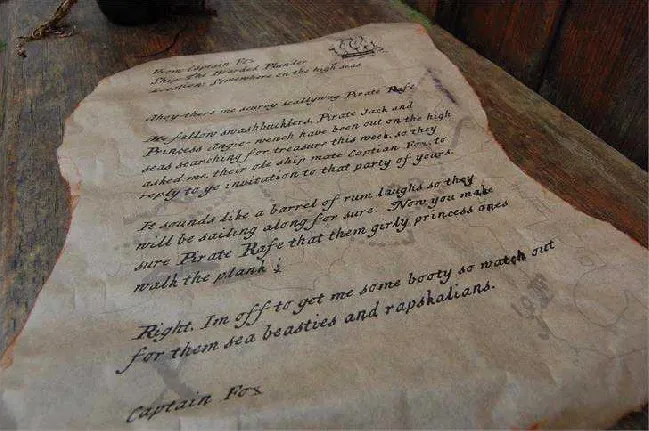 From Captain Fox
Ship: The Hoarded Plunder
Location: Somewhere on the high seas
Ahoy there me scurvy wallywag Pirate Rafe
My fellow swashbucklers, Pirate Jack and
Princess wench have been out on the high
seas searching for treasure this week, so they
asked me, their ole ship mate Captian Fox, to
reply to ye invitation to that party of yours.
It sounds like a barrel of rum laughs so they
will be sailing along for sure. Now you make
sure Pirate Rafe that them girly princess ones
walk the plank!
Right, Im off to get me some booty so watch out
for them sea beasties and rapskalians.
Captain Fox